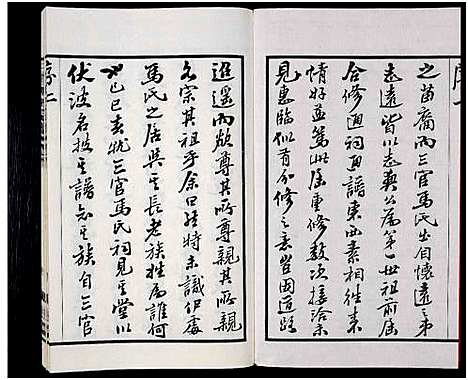 序一
之苗裔而三官馬氏出自懷遠之弟
志遠皆以志興公為第一世祖前屆
合修通祠通譜東西素相往來
情好益篤此屆重修數次接洽未
見惠臨似有分修之意豈因道路
迢遙而欲尊其所尊親其所親
各宗其祖乎余曰唯特未識伊處
馬氏之居與其長老族姓為誰何
已巳春杪三官馬氏祠見其堂以
伏波名披其譜知其族自三官
序二